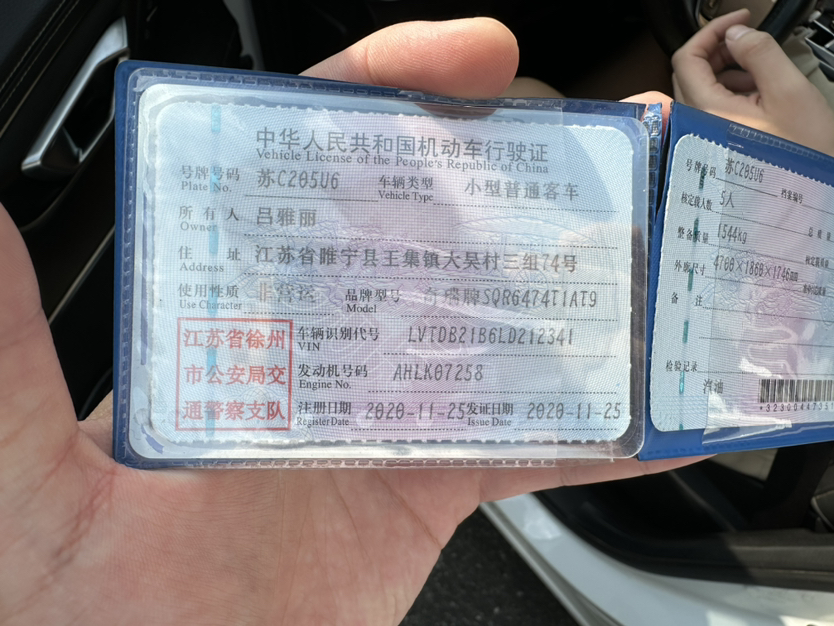 中华人民共和国机动车行驶证
Vehicle License of the People's Republic of China
号牌号码 苏C205U6 车辆类型 小型普通客车
Plate No. Vehicle Type
所有人 吕雅丽
Owner
住址 江苏省睢宁县王集镇大吴村三组74号
Address
使用性质 非营运 品牌型号 奇瑞牌SQR6474T1AT9
Use Character Model
江苏省徐州
市公安局交
通警察支队
车辆识别代号 LVTDB21B6LD212341
VIN
发动机号码 AHLK07258
Engine No.
注册日期 2020-11-25 发证日期 2020-11-25
Register Date Issue Date
号牌号码 苏C205U6 档案编号
核定载人数 5人
整备质量 1544kg
外廓尺寸 4700×1860×1746mm
备注
检验记录
汽油